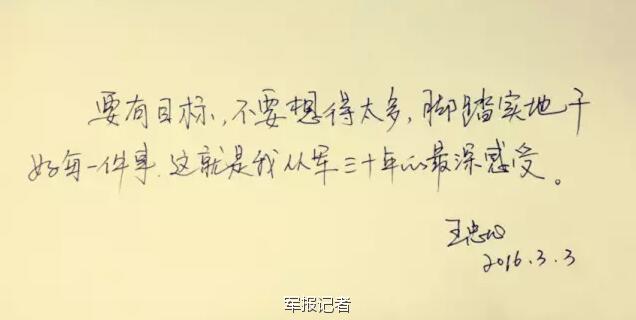 要有目标,不要想得太多,脚踏实地干
好每一件事.这就是我从军三十年的最深感受。
王忠心
2016.3.3
军报记者